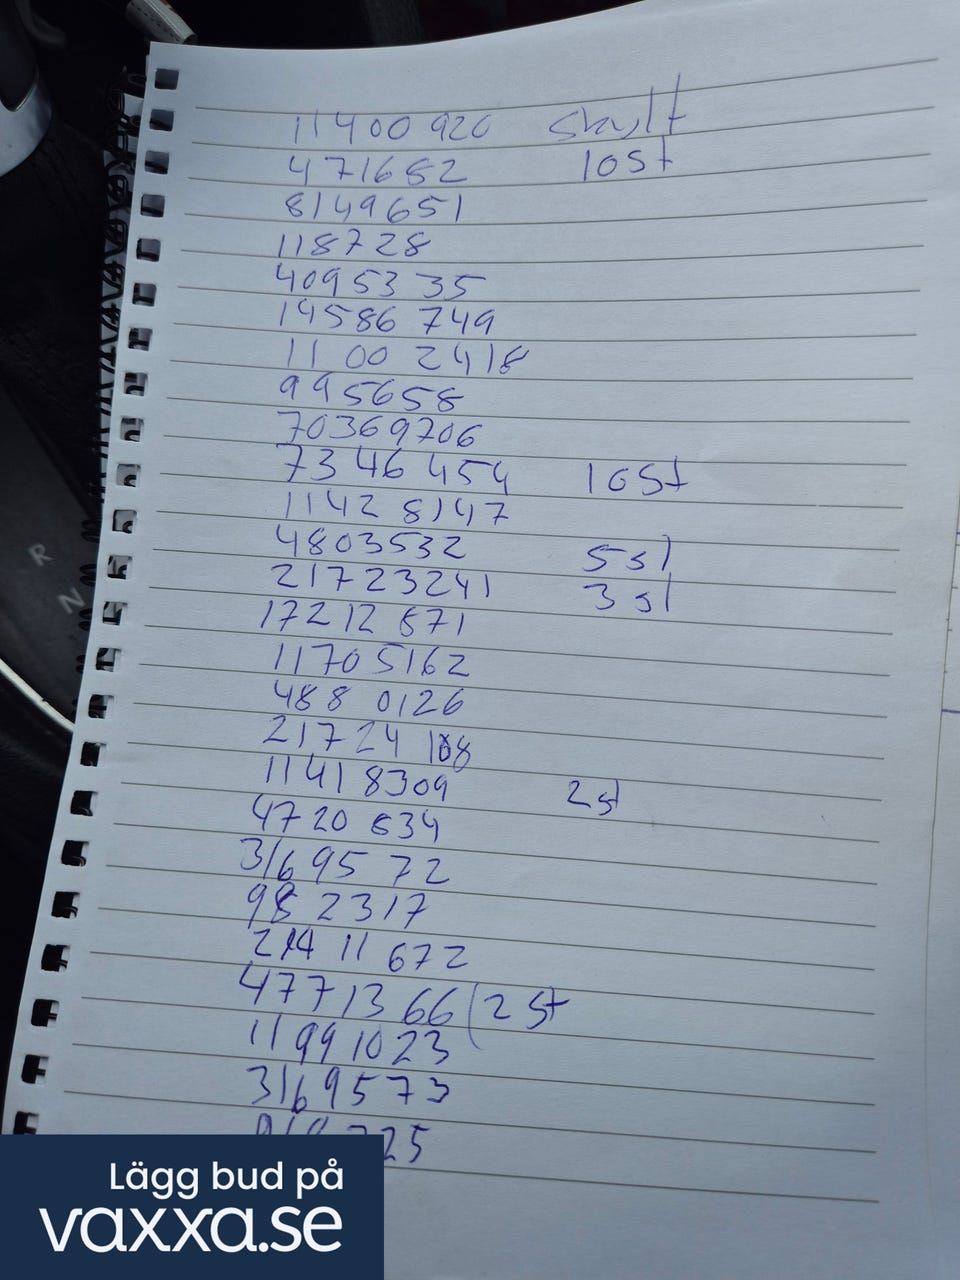 11400 920 skylt
471682 10st
8149651
118728
4095335
14586 749
11 00 2418
995658
70369706
7346 454 10st
1142 8147
4803532 5st
21723241 3st
17212 871
11705162
488 0126
21724 108
11418309 2st
4720 834
3169572
98 2317
214 11 672
4771366 (2 st
11991023
3169573
Lägg bud på
vaxxa.se
R
N